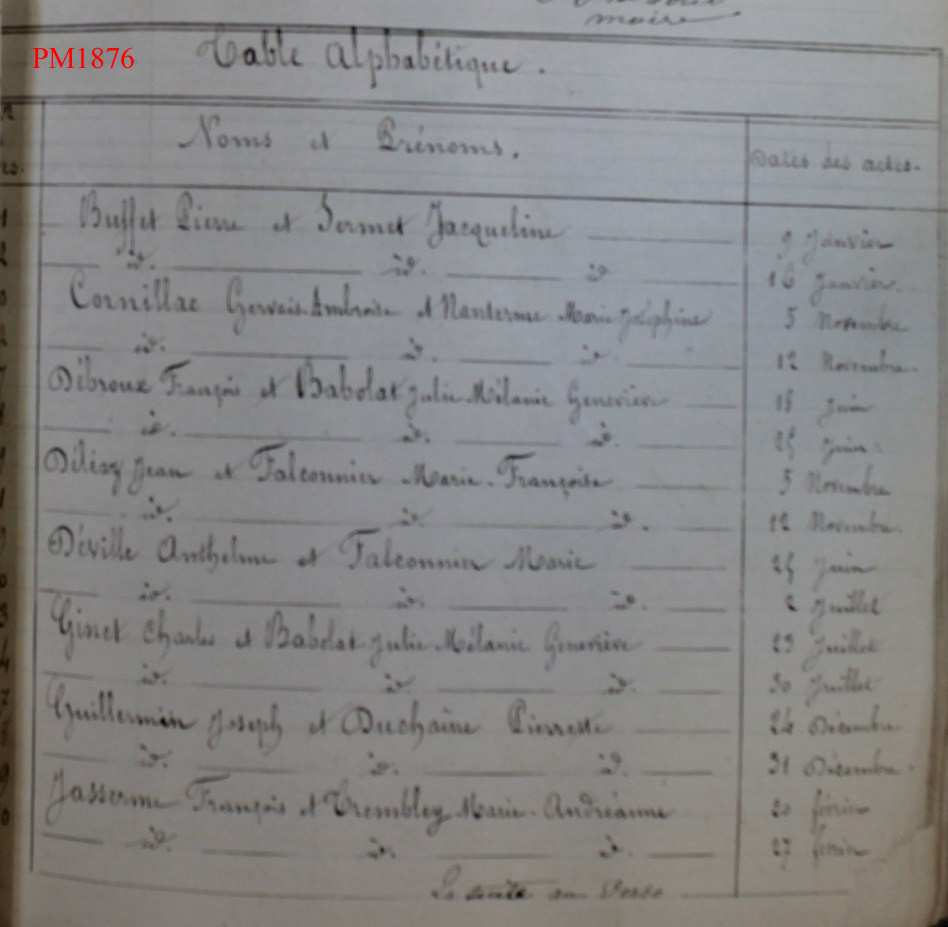 maire
PM1876
Table Alphabétique.
Noms et Prénoms.
Dates des actes.
Buffet Pierre et Sermet Jacqueline 9 Janvier
id. id. id 16 Janvier.
Cornillac Gervais-Ambroise et Nanterme Marie Joséphine 5 Novembre
id. id. id. 12 Novembre.
Débroux François et Babolat Julie Mélanie Geneviève 18 Juin
id. id. id. 25 Juin.
Jean et Falconnier Marie-Françoise 5 Novembre
id. id. id. 12 Novembre.
Déville Anthelme et Falconnier Marie 25 Juin
id. id. id. 2 Juillet
Ginet Charles et Babolat Julie Mélanie Geneviève 23 Juillet
id. id. id. 30 Juillet
Guillermin Joseph et Duchaine Pierrette 24 Décembre
id. id. id. 31 Décembre.
Jasserme François et Trembley Marie-Andréanne 20 février
id. id. id. 27 février
La suite au Verso